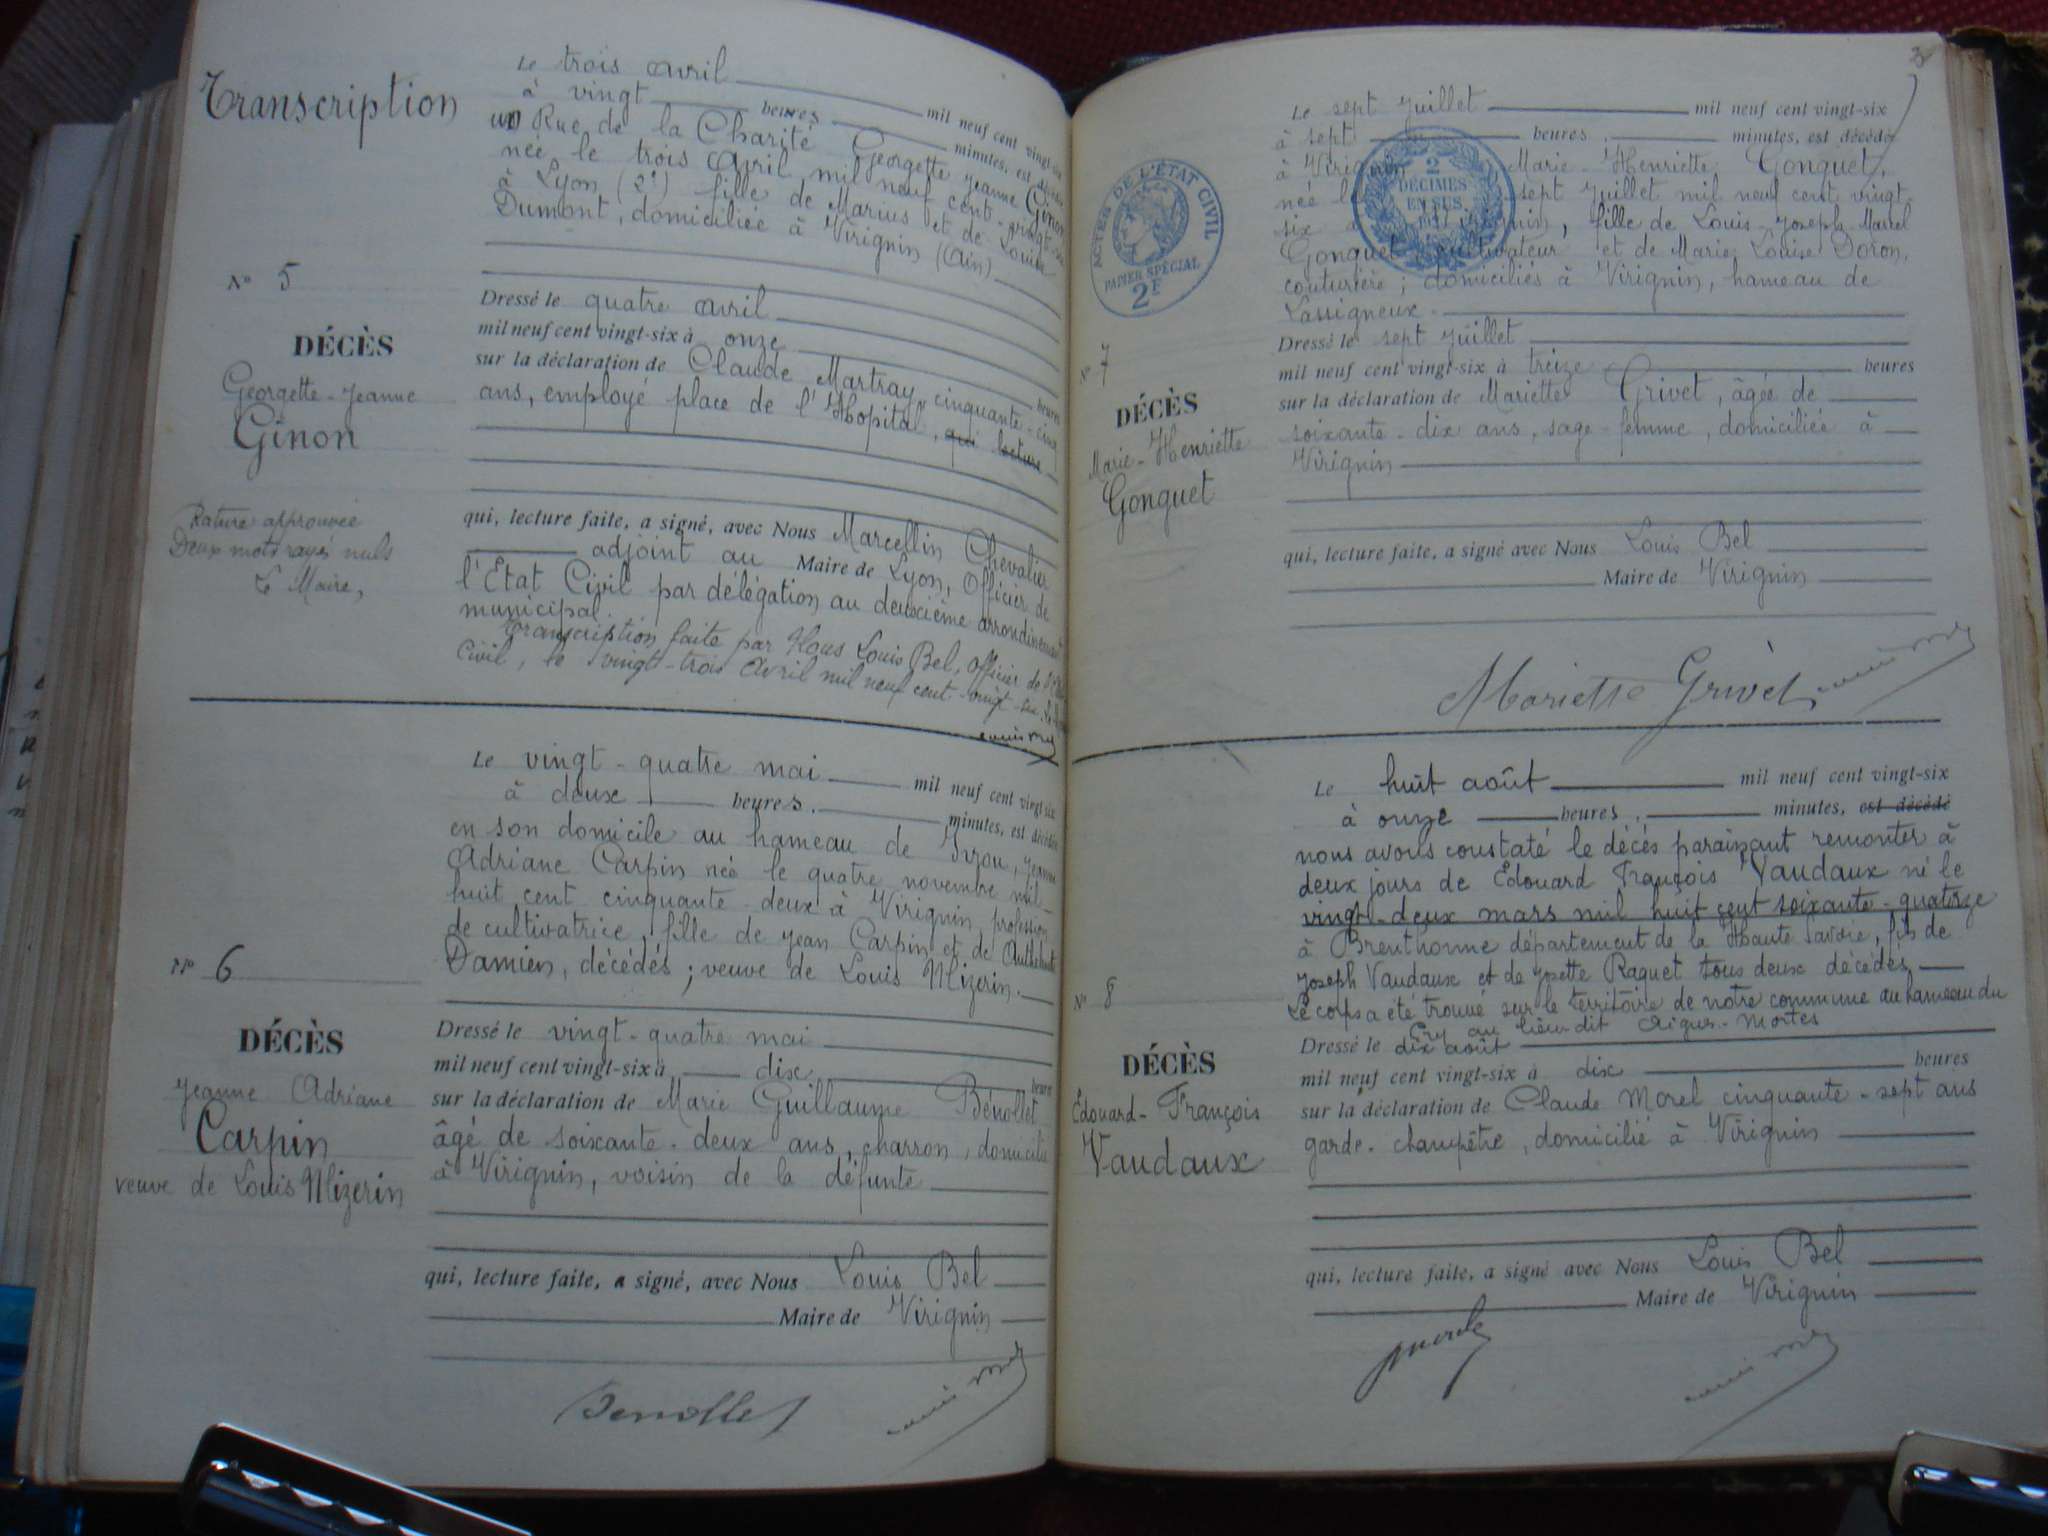 Transcription
Le trois avril mil neuf cent vingt-six
à vingt heures minutes, est décédée
Rue de la Charité Georgette Jeanne Ginon
née le trois Avril mil neuf cent vingt-six
à Lyon (2e) fille de Marius et de Louise
Dumont, domiciliée à Virignin (Ain)
No 5
DÉCÈS
Georgette-Jeanne
Ginon
Rature approuvée
Deux mots rayés nuls
Le Maire,
Dressé le quatre avril
mil neuf cent vingt-six à onze heures
sur la déclaration de Claude Martray, cinquante-cinq
ans, employé place de l'Hôpital, qui lecture
qui, lecture faite, a signé, avec Nous Marcellin Chevalier
adjoint au Maire de Lyon, Officier de
l'Etat Civil par délégation au deuxième arrondissement
municipal.
Transcription faite par Nous Louis Bel, officier de l'Etat
Civil, le vingt-trois Avril mil neuf cent vingt-six
Le vingt-quatre mai mil neuf cent vingt-six
à deux heures. minutes, est décédée
en son domicile au hameau de Jeanne
Adriane Carpin née le quatre novembre mil
huit cent cinquante-deux à Virignin, profession
de cultivatrice, fille de Jean Carpin et de
Damien, décédés; veuve de Louis Mizerin.
No 6
DÉCÈS
Jeanne Adriane
Carpin
veuve de Louis Mizerin
Dressé le vingt-quatre mai
mil neuf cent vingt-six à dix heures
sur la déclaration de Marie Guillaume Bénollet
âgé de soixante-deux ans, charron, domicilié
à Virignin, voisin de la défunte
qui, lecture faite, a signé, avec Nous Louis Bel
Maire de Virignin
Benollet
ACTES DE L'ÉTAT CIVIL
PAPIER SPÉCIAL
2F
2
DÉCIMES
EN SUS
Le sept Juillet mil neuf cent vingt-six
à sept heures, minutes, est décédée
à Virignin Marie-Henriette Gonguet,
née le sept Juillet mil neuf cent vingt-
six à Virignin, fille de Louis-Joseph-Marcel
Gonguet cultivateur et de Marie Louise Doron,
couturière; domiciliés à Virignin, hameau de
Lassigneux.
No 7
DÉCÈS
Marie-Henriette
Gonguet
Dressé le sept Juillet
mil neuf cent vingt-six à treize heures
sur la déclaration de Mariette Grivet, âgée de
soixante-dix ans, sage-femme, domiciliée à
Virignin
qui, lecture faite, a signé avec Nous Louis Bel
Maire de Virignin
Mariette Grivet
Le huit août mil neuf cent vingt-six
à onze heures, minutes, est décédé
nous avons constaté le décès paraissant remonter à
deux jours de Edouard François Vaudaux né le
vingt-deux mars mil huit cent soixante-quatorze
à Brenthonne département de la Haute Savoie, fils de
Joseph Vaudaux et de Josette Raquet tous deux décédés
Le corps a été trouvé sur le territoire de notre commune au hameau du
Cry au lieu-dit Aigus-Mortes
No 8
DÉCÈS
Edouard-François
Vaudaux
Dressé le dix août
mil neuf cent vingt-six à dix heures
sur la déclaration de Claude Morel cinquante-sept ans
garde-champêtre, domicilié à Virignin
qui, lecture faite, a signé avec Nous Louis Bel
Maire de Virignin